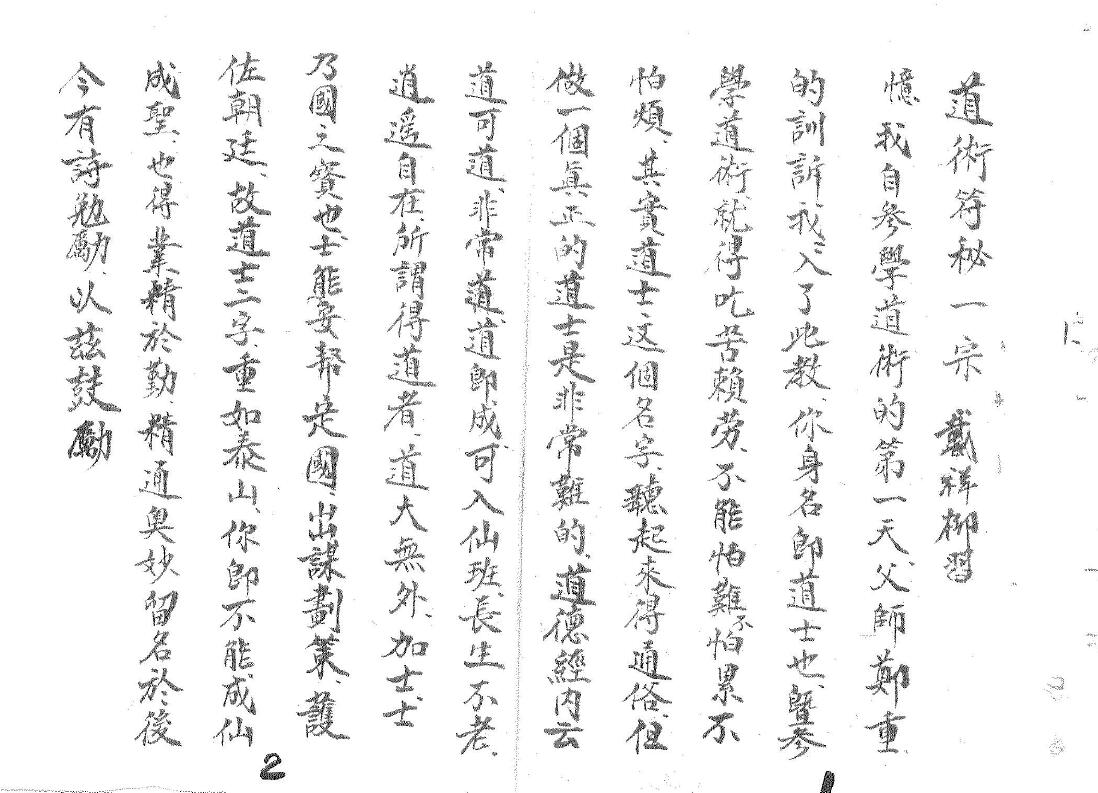 道術符秘一宗 戴祥柳習
憶我自參學道術的第一天、父師鄭重
的訓訴我〻入了此教、你身名即道士也、暨參
學道術、就得吃苦賴劳、不能怕難不怕累不
怕煩、其實道士这個名字、聽起來得通俗、但
做一個眞正的道士是非常難的、道德經内云
道可道、非常道道即成、可入仙班、長生不老、
逍遥自在、所謂得道者、道大無外、加士、士
乃國之寳也、士能安帮定國、出謀劃策、護
佐朝廷、故道士二字、重如泰山、你即不能成仙
成聖、也得業精於勤、精通奥妙、留名於後
今有詩勉勵、以茲鼓勵
1
2